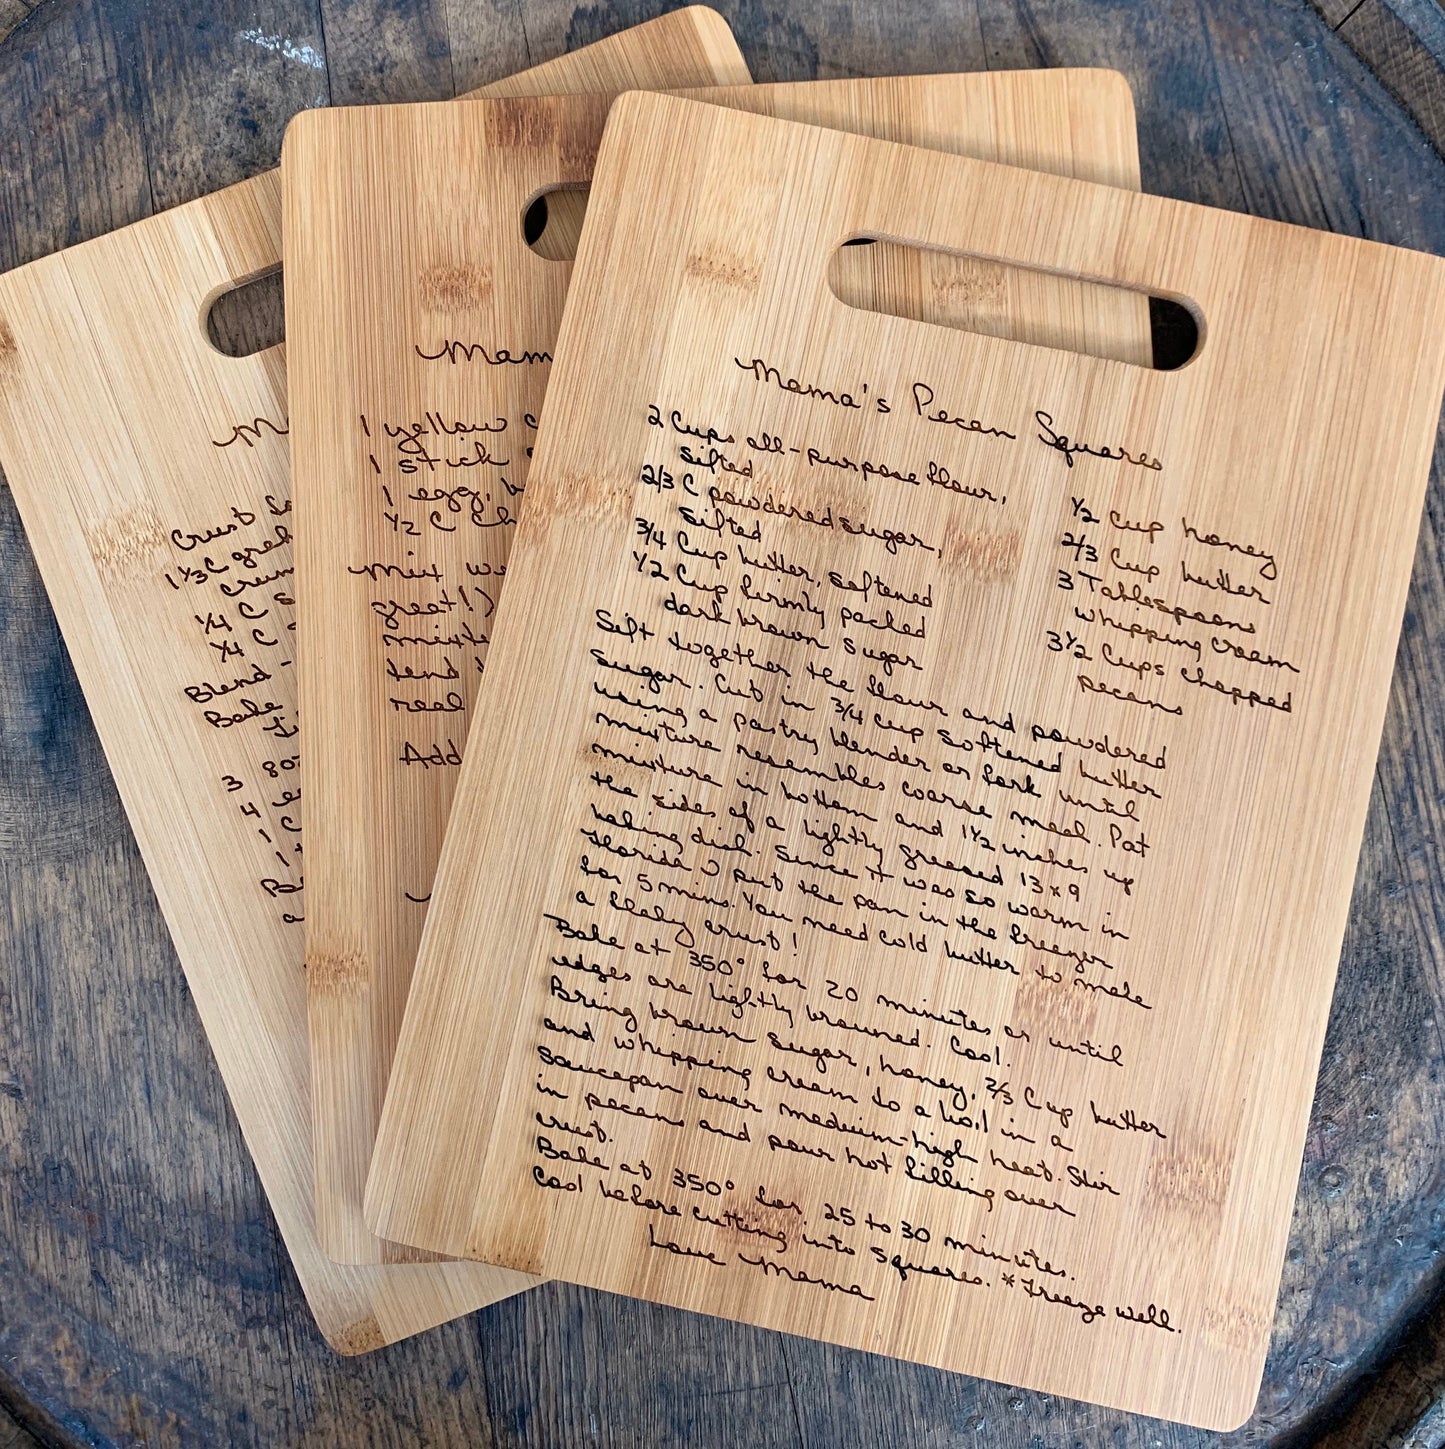 Mama's Pecan Squares
2 Cups all-purpose flour,
sifted
2/3 C powdered sugar,
sifted
3/4 Cup butter, softened
1/2 Cup firmly packed
dark brown sugar
1/2 cup honey
2/3 cup butter
3 Tablespoons
whipping cream
3 1/2 Cups chopped
pecans
Sift together the flour and powdered
sugar. Cut in 3/4 cup softened butter
using a pastry blender or fork until
mixture resembles coarse meal. Pat
mixture in bottom and 1 1/2 inches up
the sides of a lightly greased 13x9
baking dish. Since it was so warm in
Florida I put the pan in the freezer
for 5 mins. You need cold butter to make
a flaky crust!
Bake at 350° for 20 minutes or until
edges are lightly browned. Cool.
Bring brown sugar, honey, 2/3 Cup butter
and whipping cream to a boil in a
saucepan over medium-high heat. Stir
in pecans and pour hot filling over
crust.
Bake at 350° for 25 to 30 minutes.
Cool before cutting into squares. *Freeze well.
Love Mama
Mam
1 yellow c
1 stick
1 egg, b
1/2 C Ch
Mix we
great!)
mixte
tend
real
Add
M
Crust
1 1/3 C grah
crum
1/4 C S
1/4 C
Blend -
Bake
3 80
4 e
1 C
1 t
a